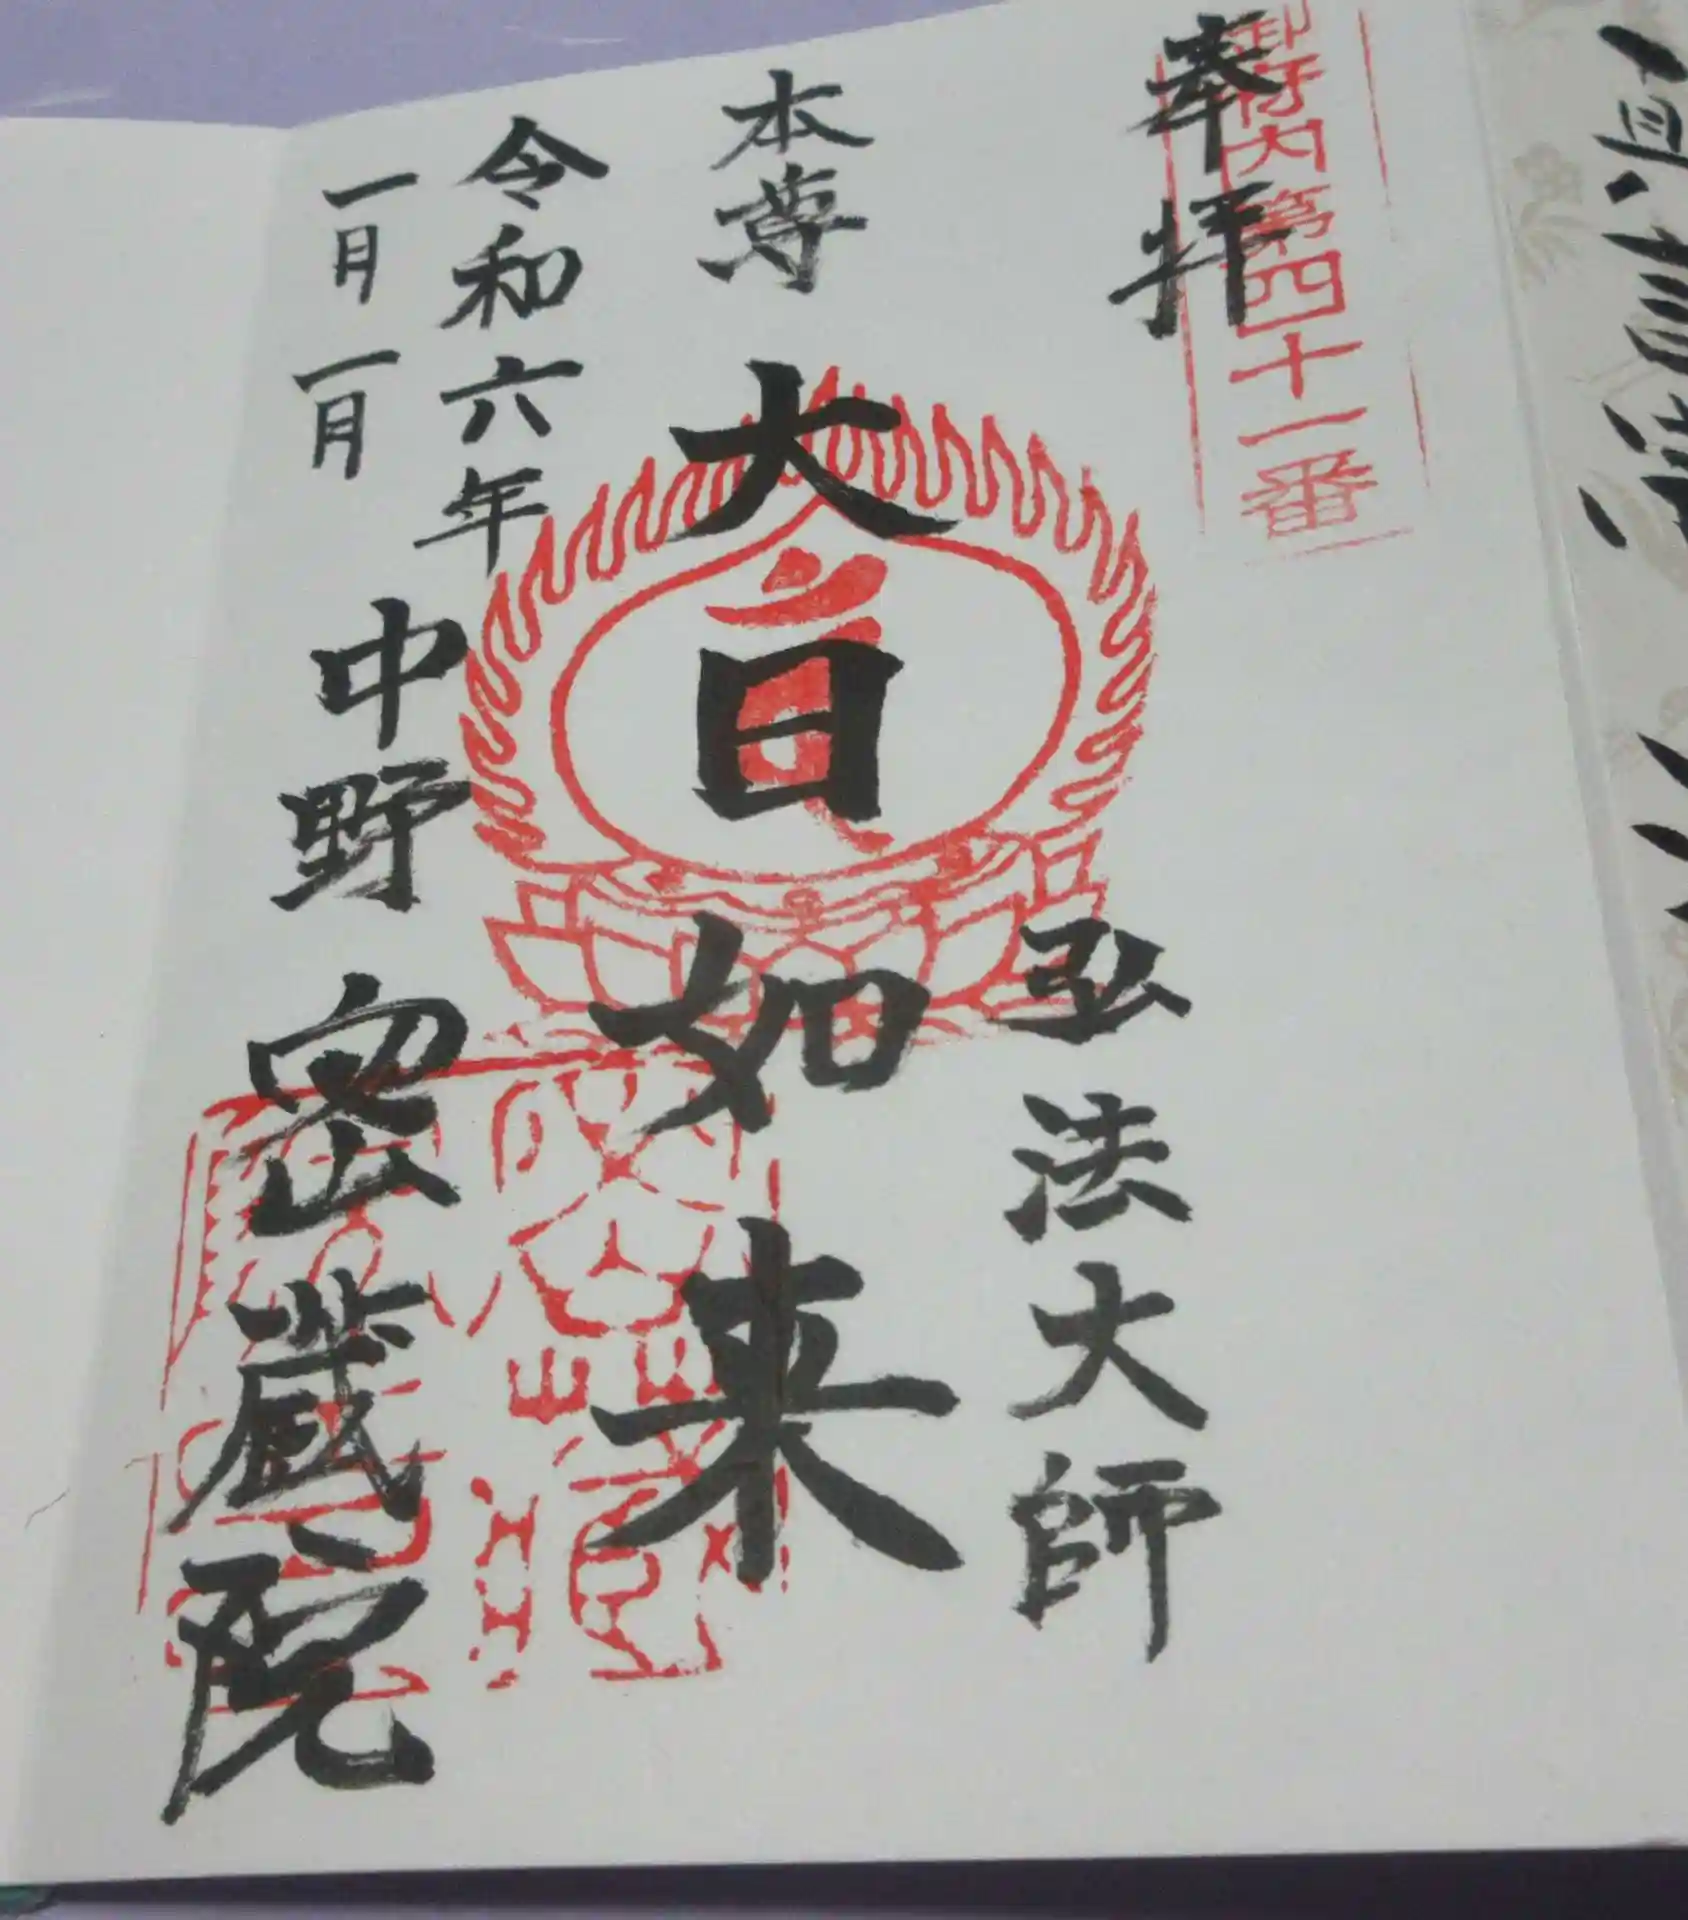 奉拝
御府内第四十一番
弘法大師
本尊
大日如来
令和六年
一月一日
中野 密蔵院